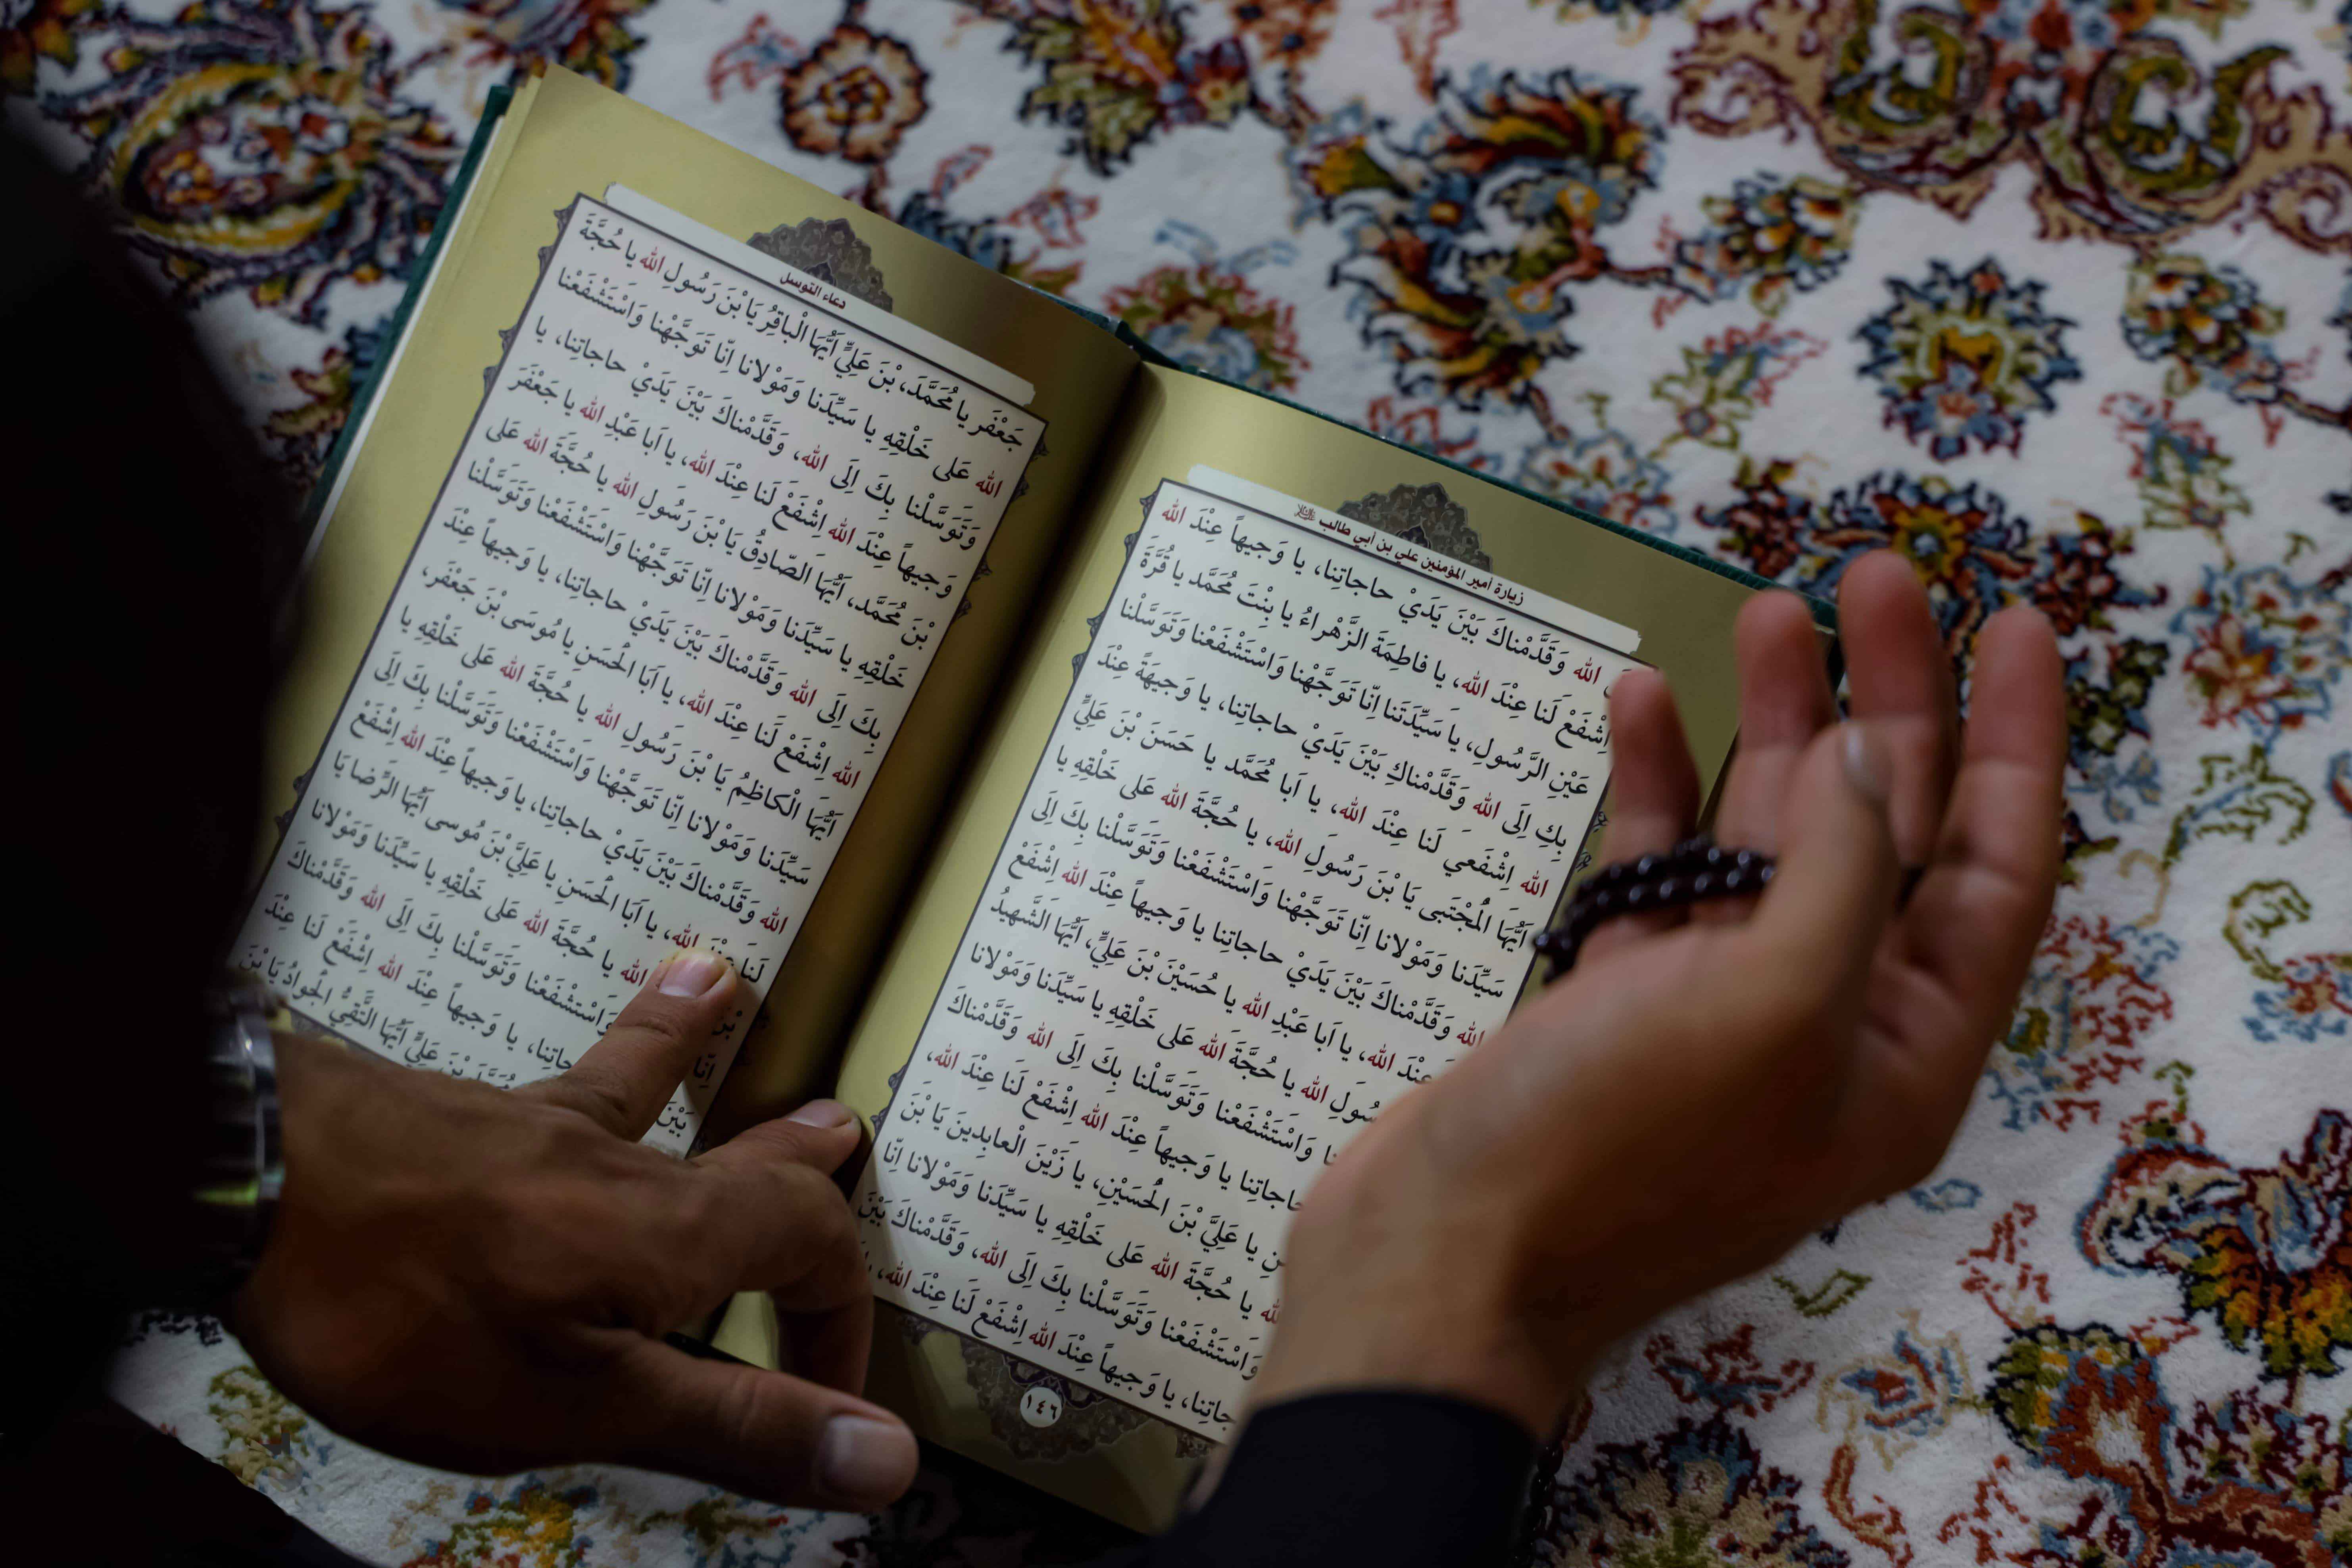 زيارة أمير المؤمنين علي بن أبي طالب
الله وَقَدَّمْناكَ بَيْنَ يَدَيْ حاجاتِنا، يا وَجيهاً عِنْدَ الله
اِشْفَعْ لَنا عِنْدَ الله، يا فاطِمَةَ الزَّهْراءُ يا بِنْتَ مُحَمَّد يا قُرَّةَ
عَيْنِ الرَّسُولِ، يا سَيِّدَتَنا اِنّا تَوَجَّهْنا وَاسْتَشْفَعْنا وَتَوَسَّلْنا
بِكِ اِلَى الله وَقَدَّمْناكِ بَيْنَ يَدَيْ حاجاتِنا، يا وَجيهَةً عِنْدَ
الله اِشْفَعي لَنا عِنْدَ الله، يا اَبا مُحَمَّد يا حَسَنَ بْنَ عَلِيٍّ
اَيُّهَا الْمُجْتَبى يَا بْنَ رَسُولِ الله، يا حُجَّةَ الله عَلى خَلْقِهِ يا
سَيِّدَنا وَمَوْلانا اِنّا تَوَجَّهْنا وَاسْتَشْفَعْنا وَتَوَسَّلْنا بِكَ اِلَى
الله وَقَدَّمْناكَ بَيْنَ يَدَيْ حاجاتِنا يا وَجيهاً عِنْدَ الله اِشْفَعْ
عِنْدَ الله، يا اَبا عَبْدِ الله يا حُسَيْنَ بْنَ عَلِيٍّ، اَيُّهَا الشَّهيدُ
الله يا حُجَّةَ الله عَلى خَلْقِهِ يا سَيِّدَنا وَمَوْلانا
وَاسْتَشْفَعْنا وَتَوَسَّلْنا بِكَ اِلَى الله وَقَدَّمْناكَ
يا وَجيهاً عِنْدَ الله اِشْفَعْ لَنا عِنْدَ الله،
يا عَلِيَّ بْنَ الْحُسَيْنِ، يا زَيْنَ الْعابِدينَ يَا بْنَ
يا حُجَّةَ الله عَلى خَلْقِهِ يا سَيِّدَنا وَمَوْلانا اِنّا
وَاسْتَشْفَعْنا وَتَوَسَّلْنا بِكَ اِلَى الله، وَقَدَّمْناكَ بَيْنَ
يا وَجيهاً عِنْدَ الله اِشْفَعْ لَنا عِنْدَ الله،
١٤٦
دعاء التوسل
جَعْفَر يا مُحَمَّدَ، بْنَ عَلِيٍّ اَيُّهَا الْباقِرُ يَا بْنَ رَسُولِ الله يا حُجَّةَ
الله عَلى خَلْقِهِ يا سَيِّدَنا وَمَوْلانا اِنّا تَوَجَّهْنا وَاسْتَشْفَعْنا
وَتَوَسَّلْنا بِكَ اِلَى الله، وَقَدَّمْناكَ بَيْنَ يَدَيْ حاجاتِنا، يا
وَجيهاً عِنْدَ الله اِشْفَعْ لَنا عِنْدَ الله، يا اَبا عَبْدِ الله يا جَعْفَرَ
بْنَ مُحَمَّد، اَيُّهَا الصّادِقُ يَا بْنَ رَسُولِ الله يا حُجَّةَ الله عَلى
خَلْقِهِ يا سَيِّدَنا وَمَوْلانا اِنّا تَوَجَّهْنا وَاسْتَشْفَعْنا وَتَوَسَّلْنا
بِكَ اِلَى الله وَقَدَّمْناكَ بَيْنَ يَدَيْ حاجاتِنا، يا وَجيهاً عِنْدَ
الله اِشْفَعْ لَنا عِنْدَ الله، يا اَبَا الْحَسَنِ يا مُوسَى بْنَ جَعْفَر،
اَيُّهَا الْكاظِمُ يَا بْنَ رَسُولِ الله يا حُجَّةَ الله عَلى خَلْقِهِ يا
سَيِّدَنا وَمَوْلانا اِنّا تَوَجَّهْنا وَاسْتَشْفَعْنا وَتَوَسَّلْنا بِكَ اِلَى
الله وَقَدَّمْناكَ بَيْنَ يَدَيْ حاجاتِنا، يا وَجيهاً عِنْدَ الله اِشْفَعْ
لَنا عِنْدَ الله، يا اَبَا الْحَسَنِ يا عَلِيَّ بْنَ مُوسى اَيُّهَا الرِّضا يَا
بْنَ الله يا حُجَّةَ الله عَلى خَلْقِهِ يا سَيِّدَنا وَمَوْلانا
اِنّا وَاسْتَشْفَعْنا وَتَوَسَّلْنا بِكَ اِلَى الله وَقَدَّمْناكَ
بَيْنَ يا وَجيهاً عِنْدَ الله اِشْفَعْ لَنا عِنْدَ
بْنَ عَلِيٍّ اَيُّهَا التَّقِيُّ الْجَوادُ يَا بْنَ